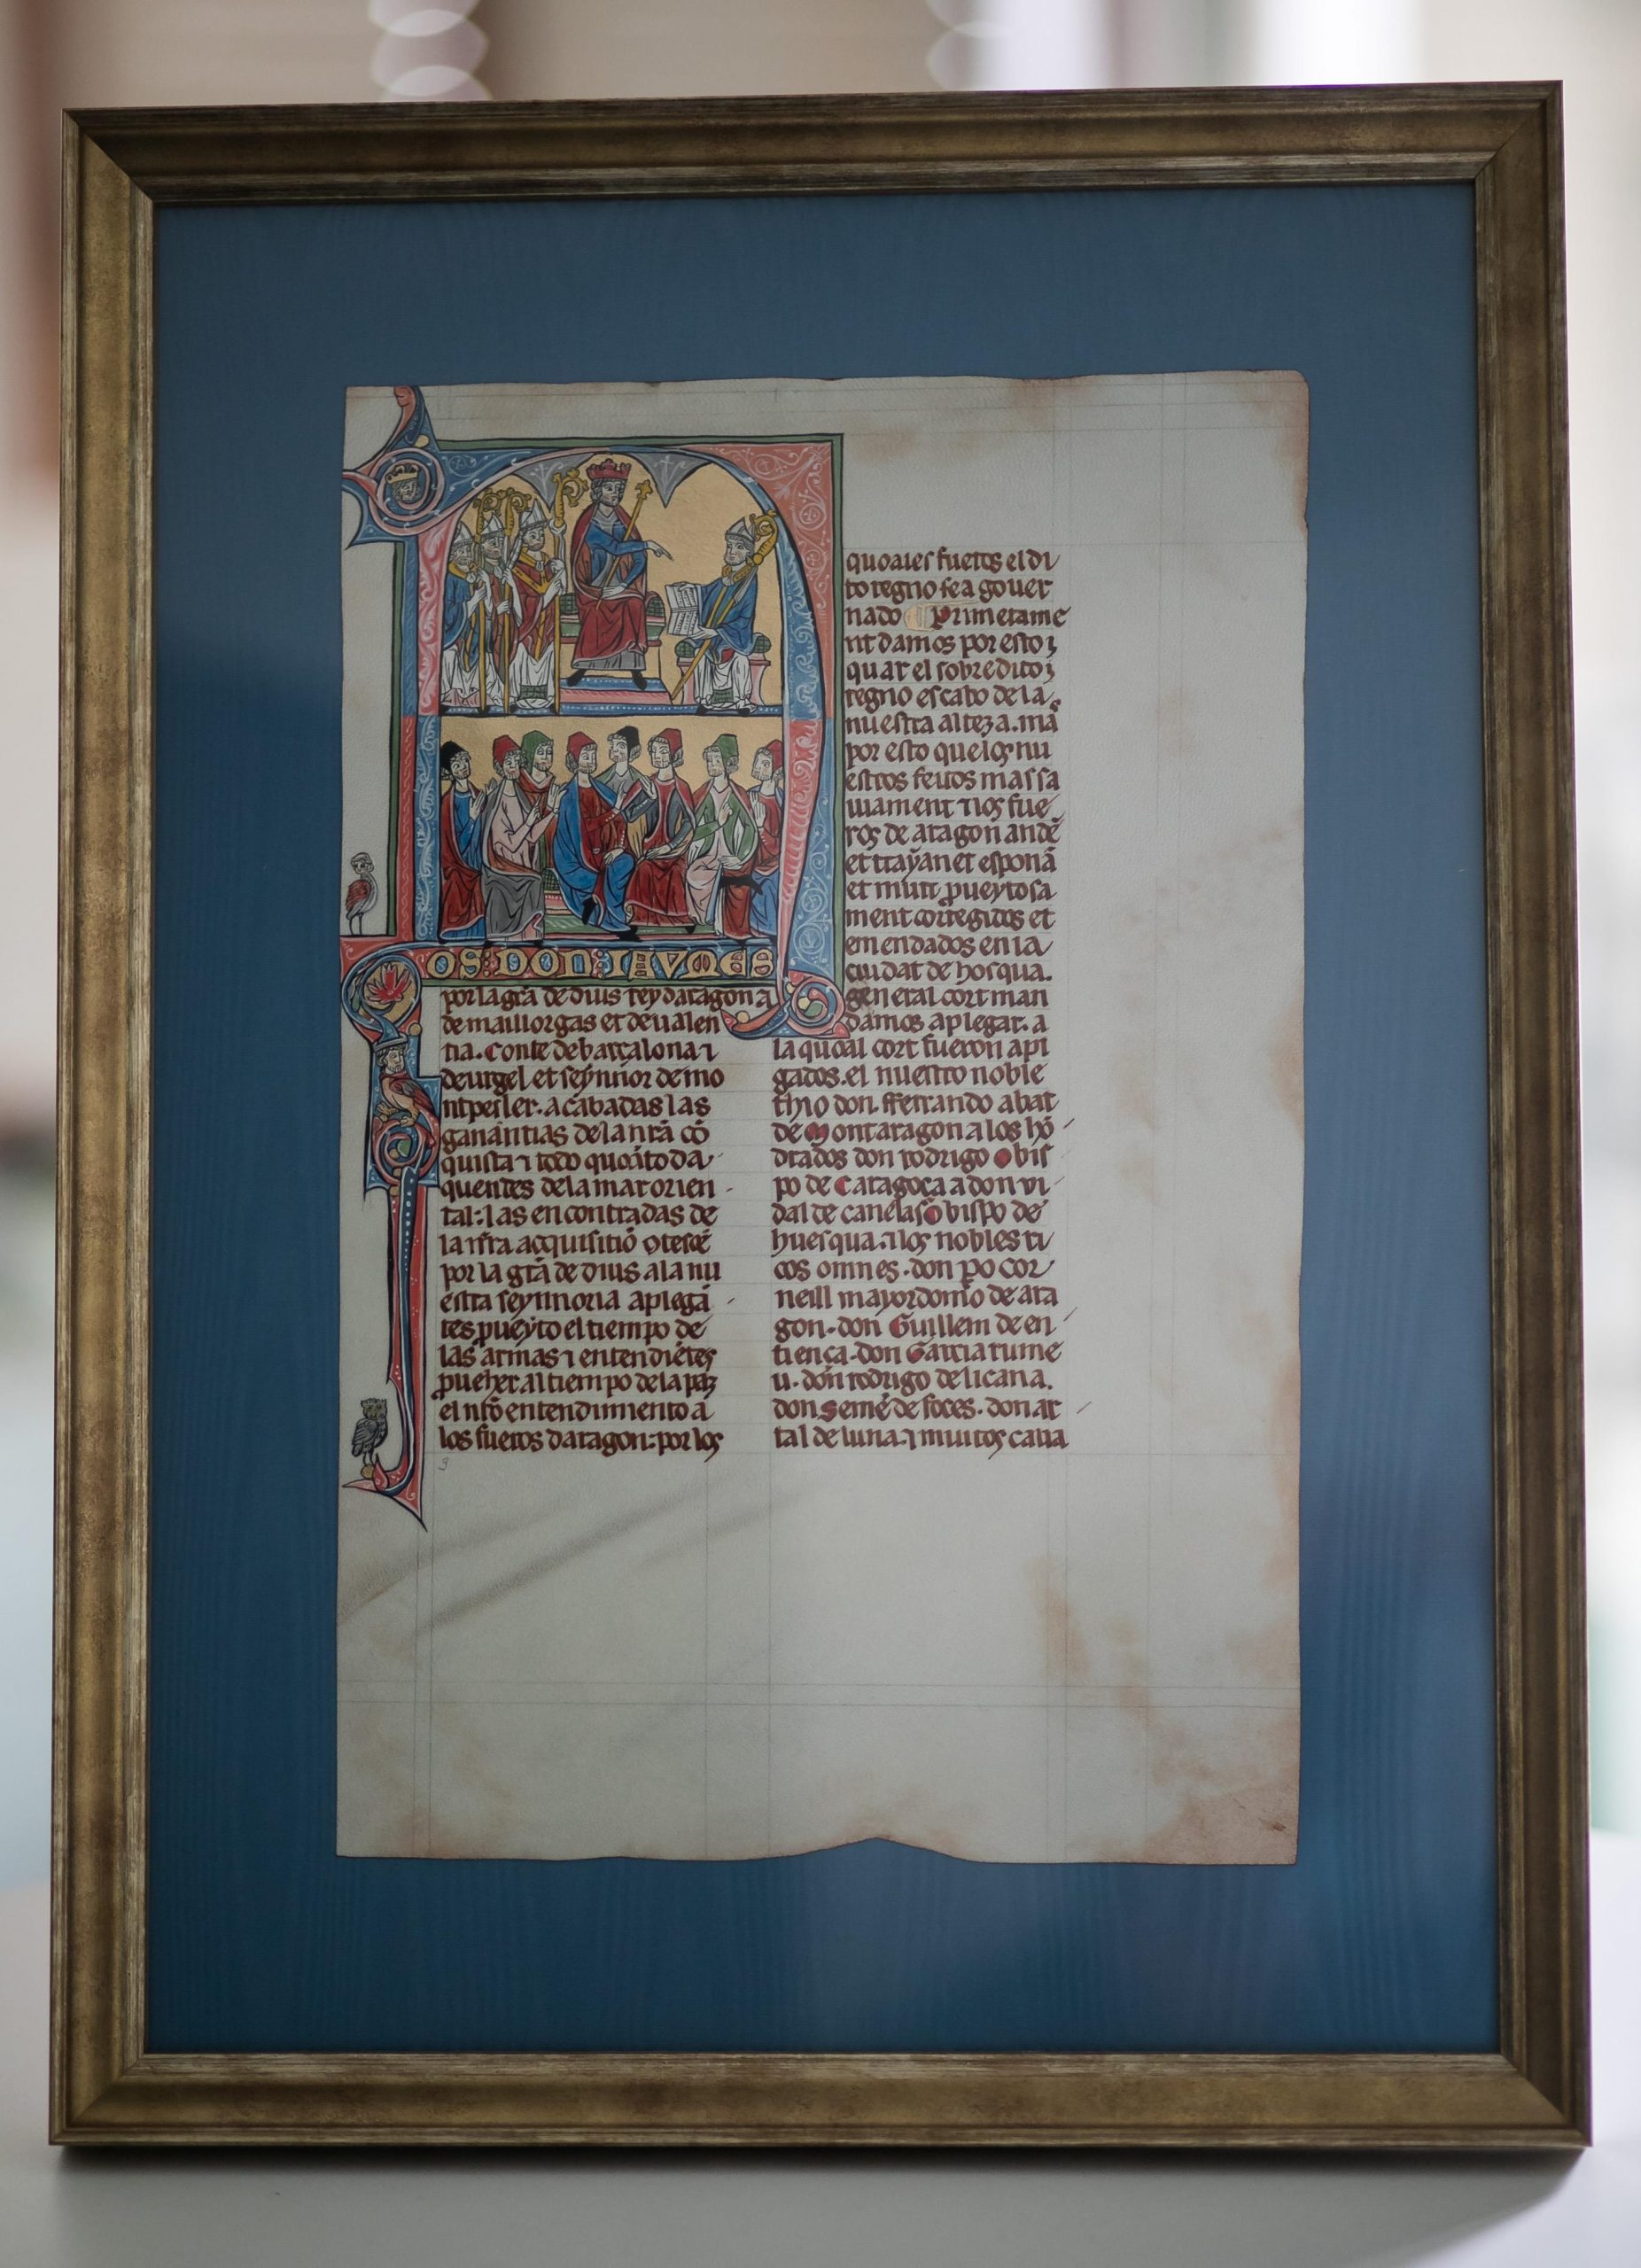 OS:DON:IAVMES
por la grā de dius rey daragon a
de maillorgas et de ualen
tia. Conte de barçalona ⁊
de urgel et seynnor de mo
ntpesler. acabadas las
ganantias de la nrā cō
quista ⁊ todo quanto da
quentes de la mar orien
tal: las encontradas de
la nr̄a acquisitiō
por la grā de dius a la nu
estra seynnoria aplegā
tes pueyto el tiempo de
las armas ⁊ entendietes
al tiempo de la paz
el nr̄o entendimento a
los fueros daragon: por los
quoales fueros el di
to regno sea gouer
nado Primerame
nt damos por esto
quar el sobredito
regno es cabo de la
nuestra alteza. mā
por esto que los nu
estros
uament ⁊ los fue
ros de aragon andē
et trayan et esponā
et muit pueyto sa
ment corregidos et
emendados en la
ciudat de hosqua.
general cort man
damos aplegar. a
la quoal cort fueron apl
gados. el nuestro noble
thio don. fferrando abat
de Montaragon a los hō
drados don rodrigo Obis
po de Caragoça a don vi
dal de canelas Obispo de
huesqua. ⁊ los nobles ri
cos omnes. don po cor
neill mayordomo de ara
gon. don Guillem de en
tiença. don Garcia rume
u. don rodrigo de liçana.
don Semē de foces. don ar
tal de luna. ⁊ muitos caua
3